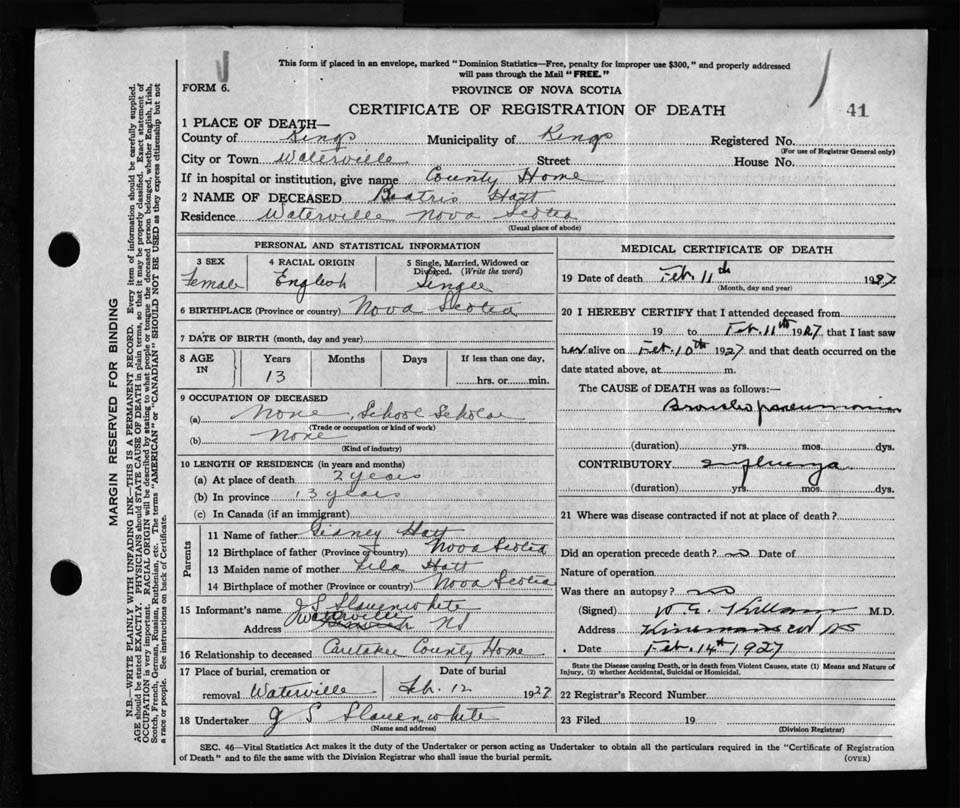 This form if placed in an envelope, marked "Dominion Statistics—Free, penalty for improper use $300," and properly addressed
will pass through the Mail "FREE."
FORM 6.
PROVINCE OF NOVA SCOTIA
CERTIFICATE OF REGISTRATION OF DEATH
41
1 PLACE OF DEATH—
County of Kings Municipality of Kings Registered No.
(For use of Registrar General only)
City or Town Waterville Street House No.
If in hospital or institution, give name County Home
2 NAME OF DECEASED Beatris Hatt
Residence Waterville Nova Scotia
(Usual place of abode)
PERSONAL AND STATISTICAL INFORMATION
3 SEX
Female
4 RACIAL ORIGIN
English
5 Single, Married, Widowed or
Divorced. (Write the word)
Single
6 BIRTHPLACE (Province or country) Nova Scotia
7 DATE OF BIRTH (month, day and year)
8 AGE IN
Years Months Days If less than one day,
13 hrs. or min.
9 OCCUPATION OF DECEASED
(a) None, School Scholar
(Trade or occupation or kind of work)
(b) None
(Kind of industry)
10 LENGTH OF RESIDENCE (in years and months)
(a) At place of death 2 years
(b) In province 13 years
(c) In Canada (if an immigrant)
Parents
11 Name of father Sidney Hatt
12 Birthplace of father (Province or country) Nova Scotia
13 Maiden name of mother Lila Hatt
14 Birthplace of mother (Province or country) Nova Scotia
15 Informant's name J S Slauenwhite
Address Waterville NS
16 Relationship to deceased Caretaker County Home
17 Place of burial, cremation or Date of burial
removal Waterville Feb. 12 1927
18 Undertaker J S Slauenwhite
(Name and address)
MEDICAL CERTIFICATE OF DEATH
19 Date of death Feb. 11th 1927
(Month, day and year)
20 I HEREBY CERTIFY that I attended deceased from
19 to Feb. 11th 1927 that I last saw
her alive on Feb. 10th 1927 and that death occurred on the
date stated above, at m.
The CAUSE of DEATH was as follows:—
Broncho pneumonia
(duration) yrs. mos. dys.
CONTRIBUTORY influenza
(duration) yrs. mos. dys.
21 Where was disease contracted if not at place of death?
Did an operation precede death? no Date of
Nature of operation
Was there an autopsy? no
(Signed) M.D.
Address NS
Date Feb. 14th 1927
State the Disease causing Death, or in death from Violent Causes, state (1) Means and Nature of
Injury, (2) whether Accidental, Suicidal or Homicidal.
22 Registrar's Record Number
23 Filed 19
(Division Registrar)
SEC. 46—Vital Statistics Act makes it the duty of the Undertaker or person acting as Undertaker to obtain all the particulars required in the "Certificate of Registration
of Death" and to file the same with the Division Registrar who shall issue the burial permit.
(OVER)
MARGIN RESERVED FOR BINDING
N.B.—WRITE PLAINLY WITH UNFADING INK—THIS IS A PERMANENT RECORD. Every item of information should be carefully supplied.
AGE should be stated EXACTLY. PHYSICIANS should STATE CAUSE OF DEATH in plain terms, so that it may be properly classified. Exact statement of
OCCUPATION is very important. RACIAL ORIGIN will be described by stating to what people or tongue the deceased person belonged, whether English, Irish,
Scotch, French, German, Russian, Ruthenian, etc. The terms "AMERICAN" or "CANADIAN" SHOULD NOT BE USED as they express citizenship but not
a race or people. See instructions on back of Certificate.